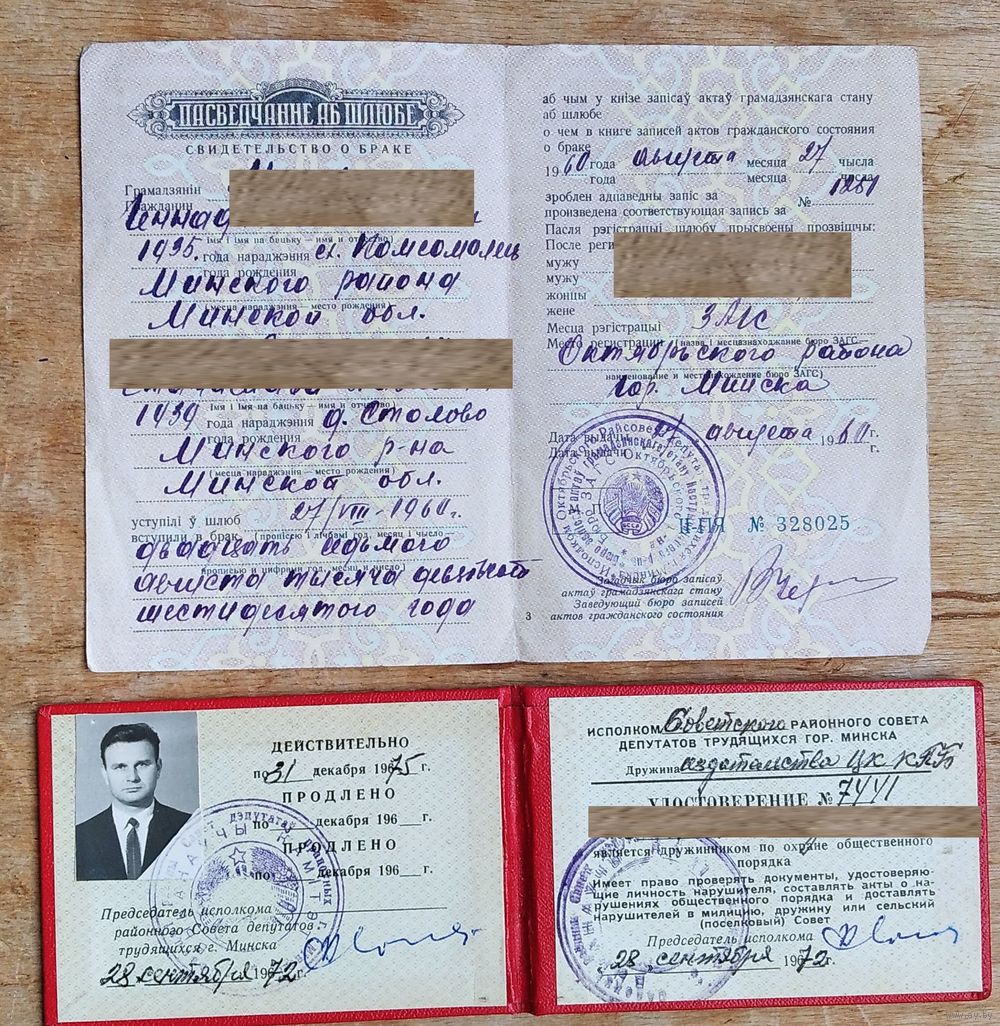 ПАСВЕДЧАННЕ АБ ШЛЮБЕ
СВИДЕТЕЛЬСТВО О БРАКЕ
Грамадзянін
Гражданин
Геннад
імя і імя па бацьку — имя и отчество)
1935. года нараджэння ст. Комсомолец
года рождения
Минского района
(месца нараджэння — место рождения)
Минской обл.
імя і імя па бацьку — имя и отчество)
1939 года нараджэння д. Столово
года рождения
Минского р-на
(месца нараджэння — место рождения)
Минской обл.
уступілі ў шлюб 27/VIII-1960г.
вступили в брак (пропісью і лічбамі год, месяц і число
двадцать седьмого
прописью и цифрами год, месяц и число)
августа тысяча девятьсот
шестидесятого года
аб чым у кнізе запісаў актаў грамадзянскага стану
аб шлюбе
о чем в книге записей актов гражданского состояния
о браке
1960 года августа месяца 27 чысла
года месяца числа
зроблен адпаведны запіс за № 1281
произведена соответствующая запись за
Пасля рэгістрацыі шлюбу прысвоены прозвішчы:
После реги
мужу
мужу
жонцы
жене
Месца рэгістрацыі ЗАГС
Место регистрации (назва і месцазнаходжанне бюро ЗАГС
Октябрьского района
наименование и местонахождение бюро ЗАГС)
гор. Минска
Дата выдачы 27 августа 1960 г.
Дата выдачи г.
II-ПЯ № 328025
Загадчык бюро запісаў
актаў грамадзянскага стану
Заведующий бюро записей
3 актов гражданского состояния
ДЕЙСТВИТЕЛЬНО
по 31 декабря 1975 г.
ПРОДЛЕНО
по декабря 196 г.
ПРОДЛЕНО
по декабря 196 г.
Председатель исполкома
районного Совета депутатов
трудящихся г. Минска
28 сентября 1972 г.
ИСПОЛКОМ Советского РАЙОННОГО СОВЕТА
ДЕПУТАТОВ ТРУДЯЩИХСЯ ГОР. МИНСКА
Дружина издательства ЦК КПБ
УДОСТОВЕРЕНИЕ №
является дружинником по охране общественного
порядка
Имеет право проверять документы, удостоверяю-
щие личность нарушителя, составлять акты о на-
рушениях общественного порядка и доставлять
нарушителей в милицию, дружину или сельский
(поселковый) Совет
Председатель исполкома
28 сентября 1972 г.
www.ay.by